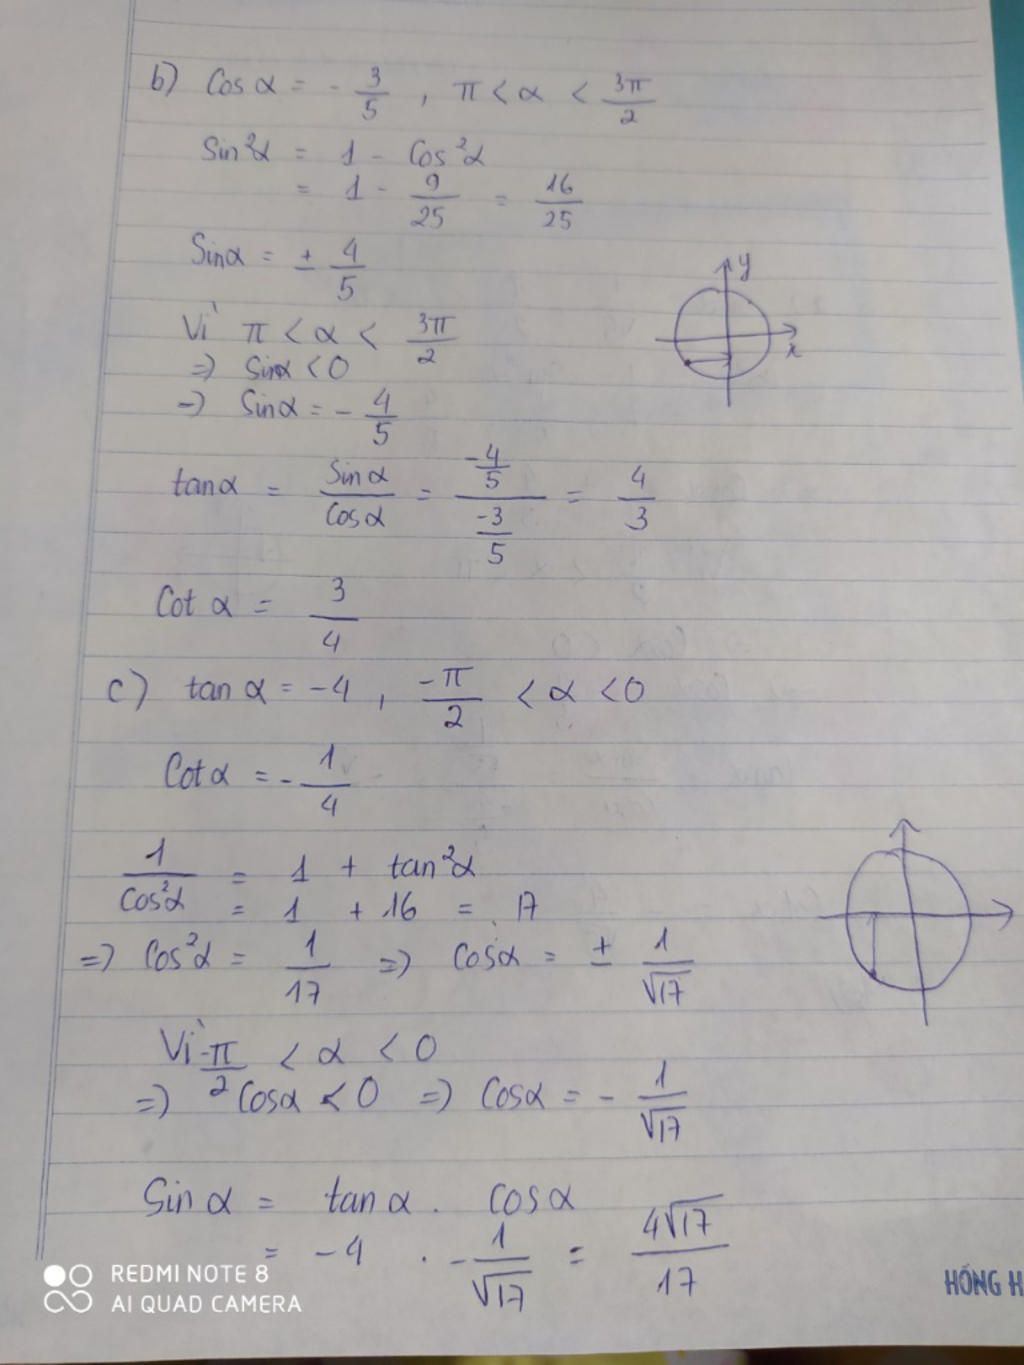 b) Cos α = - 3/5 , π < α < 3π/2
Sin²α = 1 - Cos²α
= 1 - 9/25 = 16/25
Sinα = ± 4/5
y
Vì π < α < 3π/2
x
=> Sinα < 0
-> Sinα = - 4/5
tanα = Sinα/Cosα = (-4/5)/(-3/5) = 4/3
Cot α = 3/4
c) tan α = -4 , -π/2 < α < 0
Cot α = - 1/4
1/Cos²α = 1 + tan²α
= 1 + 16 = 17
=> Cos²α = 1/17 => Cosα = ± 1/√17
Vì -π/2 < α < 0
=> Cosα < 0 => Cosα = - 1/√17
Sin α = tan α . cos α
= -4 . - 1/√17 = 4√17/17
REDMI NOTE 8
AI QUAD CAMERA
HỒNG H